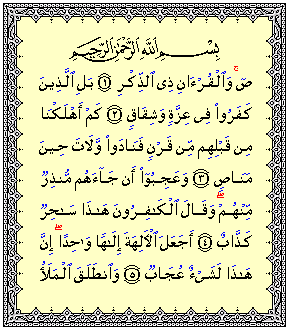 بِسْمِ ٱللَّهِ ٱلرَّحْمَٰنِ ٱلرَّحِيمِ
صٓ ۚ وَٱلْقُرْءَانِ ذِى ٱلذِّكْرِ ١ بَلِ ٱلَّذِينَ
كَفَرُوا۟ فِى عِزَّةٍ وَشِقَاقٍ ٢ كَمْ أَهْلَكْنَا
مِن قَبْلِهِم مِّن قَرْنٍ فَنَادَوا۟ وَّلَاتَ حِينَ
مَنَاصٍ ٣ وَعَجِبُوٓا۟ أَن جَآءَهُم مُّنذِرٌ
مِّنْهُمْ ۖ وَقَالَ ٱلْكَٰفِرُونَ هَٰذَا سَٰحِرٌ
كَذَّابٌ ٤ أَجَعَلَ ٱلْءَالِهَةَ إِلَٰهًا وَٰحِدًا ۖ إِنَّ
هَٰذَا لَشَىْءٌ عُجَابٌ ٥ وَٱنطَلَقَ ٱلْمَلَأُ